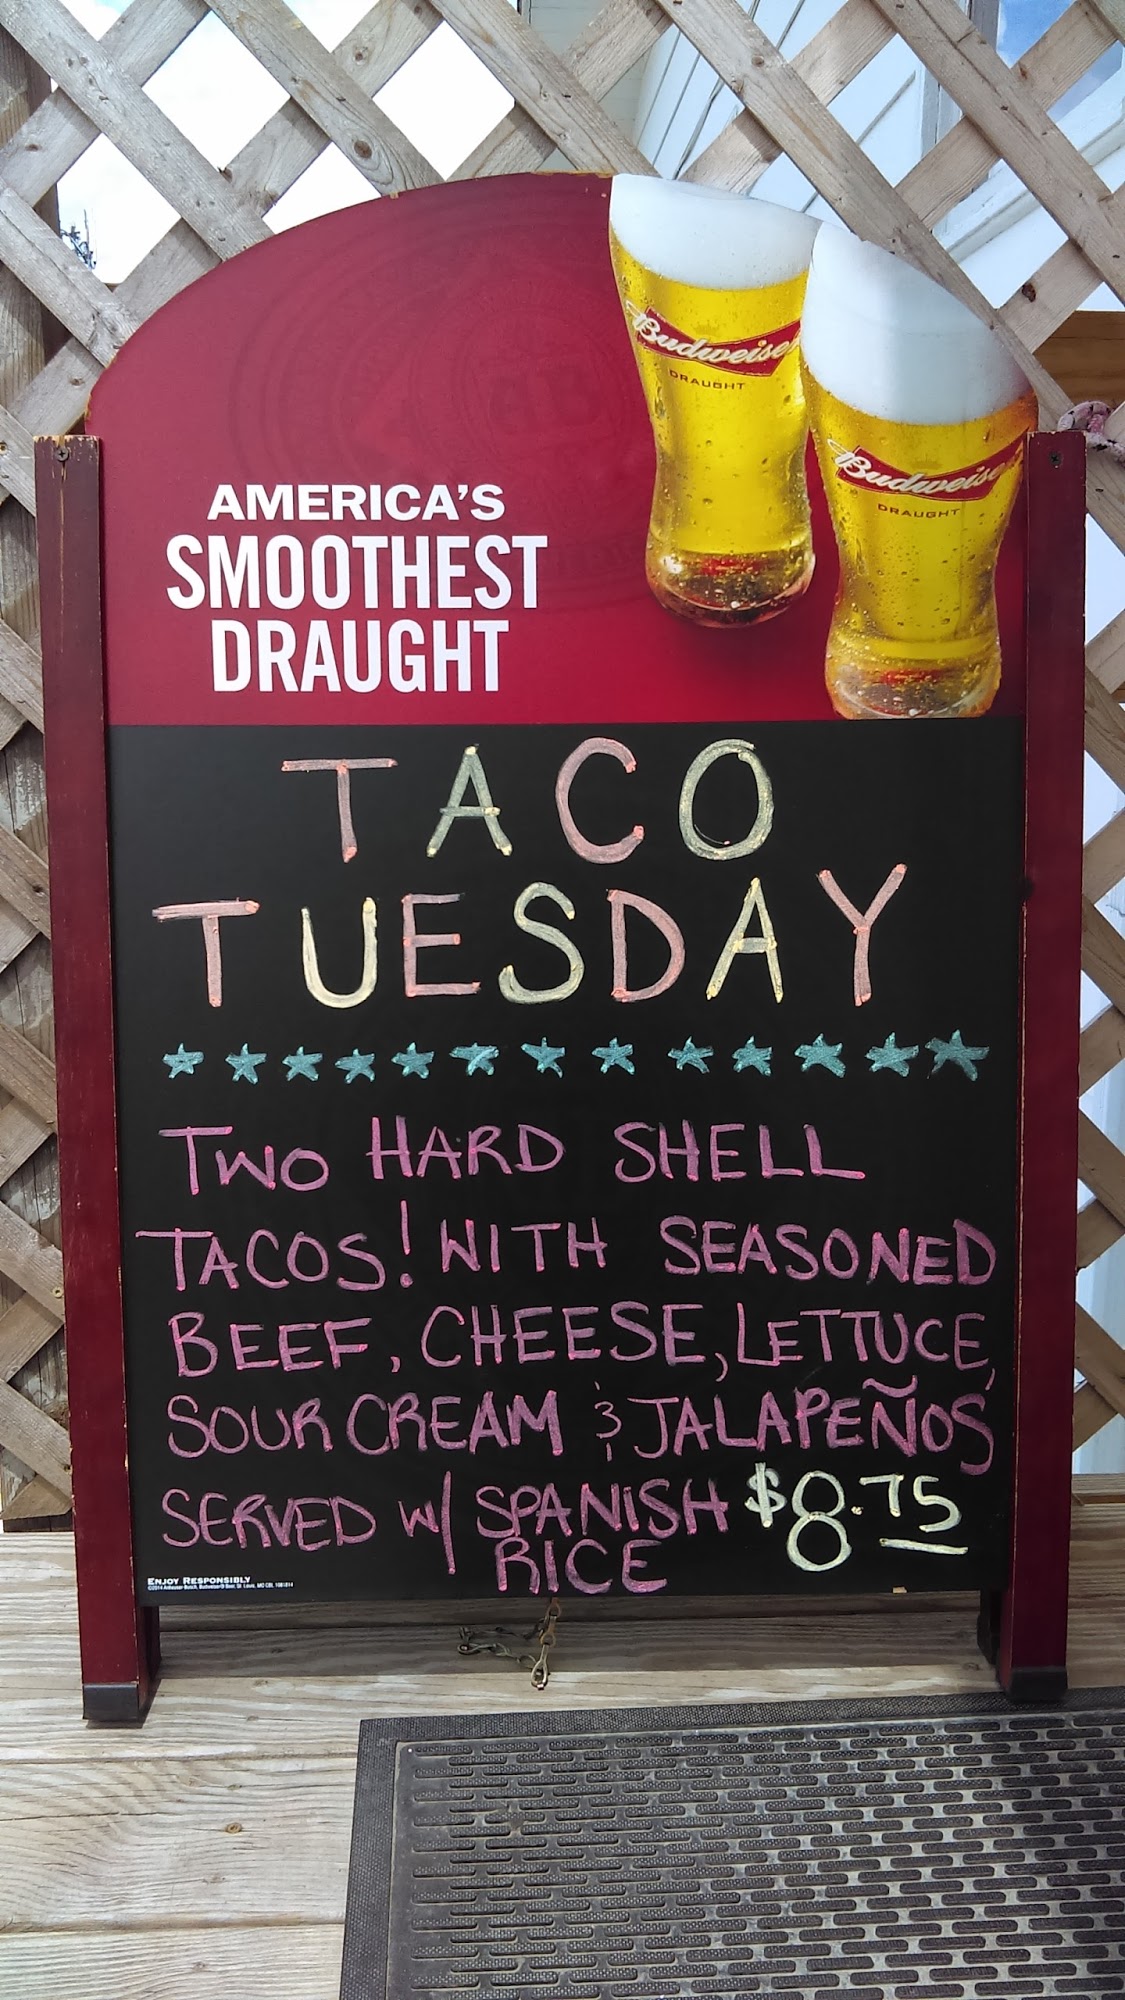 Budweiser
DRAUGHT
Budweiser
DRAUGHT
AMERICA'S
SMOOTHEST
DRAUGHT
TACO
TUESDAY
TWO HARD SHELL
TACOS! WITH SEASONED
BEEF, CHEESE, LETTUCE,
SOUR CREAM & JALAPEÑOS
SERVED W/ SPANISH $8.75
RICE
ENJOY RESPONSIBLY